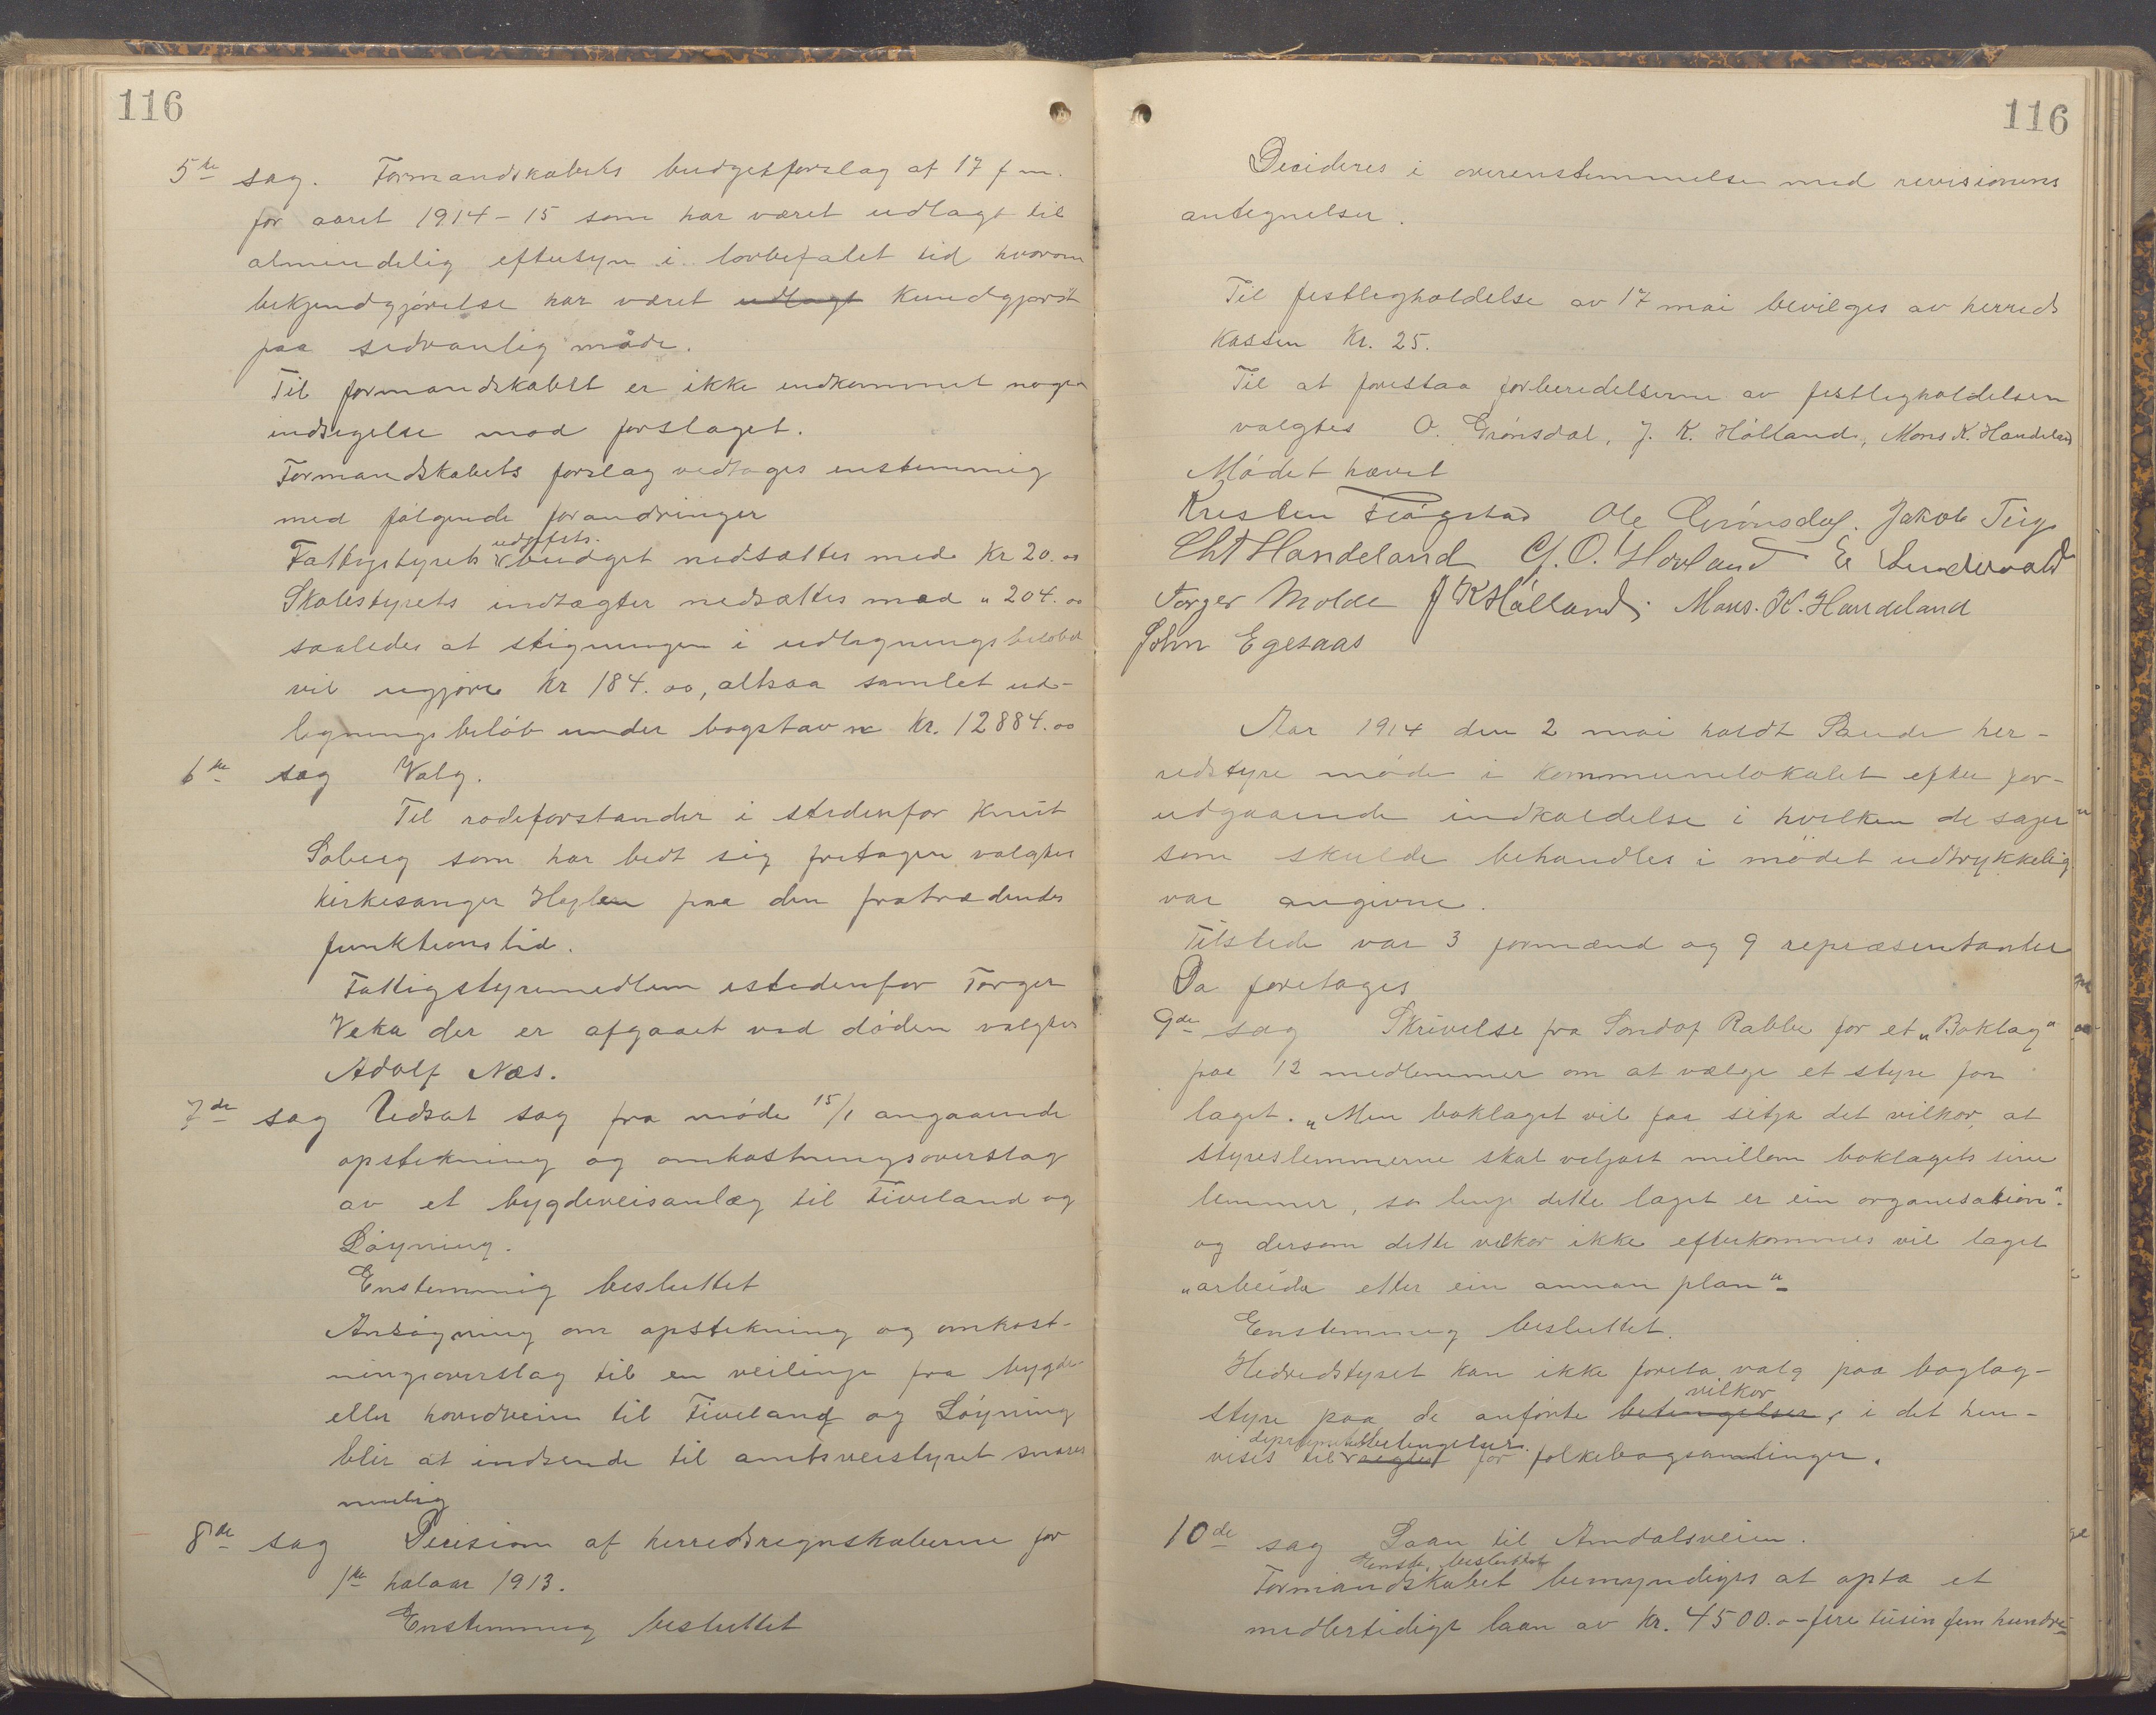 116
5te sag. Formandskabets budgetforslag af 17 f m.
for aaret 1914-15 som har været udlagt til
almindelig eftersyn i lovbefalet tid hvorom
bekjendgjørelse har været udlagt kundgjort
paa sedvanlig måde.
Til formandskabet er ikke indkommet nogen
indsigelse mod forslaget.
Formandskabets forslag vedtages enstemmig
med følgende forandringer
udgifts.
Fattigstyrets budget nedsættes med Kr 20.00
Skolestyrets indtægter nedsættes med " 204.00
saaledes at stigningen i udligningsbeløbet
vil ugjøre Kr 184.00, altsaa samlet ud-
ligningsbeløb under bogstav Kr. 12884.00
6te sag Valg.
Til rodeforstander i stedenfor Knut
Soberg som har bedt sig fritagen valgtes
kirkesanger Heglen paa den fratrædendes
funktionstid.
Fattigstyremedlem istedenfor Torger
Veka der er afgaaet ved døden valgtes
Adolf Næs.
7de sag Udsat sag fra møde 15/1 angaaende
opstikning og omkostningsoverslag
av et bygdeveisanlæg til Fiveland og
Løyning.
Enstemmig besluttet
Ansøgning om opstikning og omkost-
ningsoverslag til en veilinje fra bygde-
eller hovedveien til Fiveland og Løyning
blir at indsende til amtsveistyret snares
menlig
8de sag Decision af herredsregnskaberne for
1ste halaar 1913.
Enstemmig besluttet
116
Decideres i overenstemmelse med revisionens
antegnelser.
Til festligholdelse av 17 mai bevilges av herreds
kassen Kr. 25.
Til at forestaa forberedelserne av festligholdelsen
valgtes O. Grønsdal, J. K. Hålland, Mons K. Handeland
Mødet hævet
Kresten Fløgstad Ole Grønsdal. Jakob Teig
Cht Handeland O. Hovland E Undervald
Torger Molde J K Hålland; Mons. K. Handeland
John Egesaas
Aar 1914 den 2 mai holdt Sande her-
redstyre møde i kommunelokalet efter for-
udgaaende indkaldelse i hvilken de sager
som skulde behandles i mødet udtrykkelig
var angivne.
Tilstede var 3 formænd og 9 repræsentanter
Da foretages
9de sag Skrivelse fra Sondof Rabbe for et „Boklag"
paa 12 medlemmer om at vælge et styre for
laget. „Men boklaget vil faa setja det vilkor, at
styreslemmerne skal veljast millom boklagets sine
lemmer, so lenge dette laget er ein organisation".
og dersom dette vilkor ikke efterkommes vil laget
„arbeida etter ein annan plan".
Enstemmig besluttet.
Hedredstyret kan ikke foreta valg paa boglag-
vilkor
styre paa de anførte betingelser, i det hen-
betingelser.
vises til for folkebogsamlinger.
10de sag Laan til Amdalsveien.
Enst. besluttet
Formandskabet bemyndiges at opta et
midlertidigt laan av Kr. 4500.- - fire tusin fem hundre